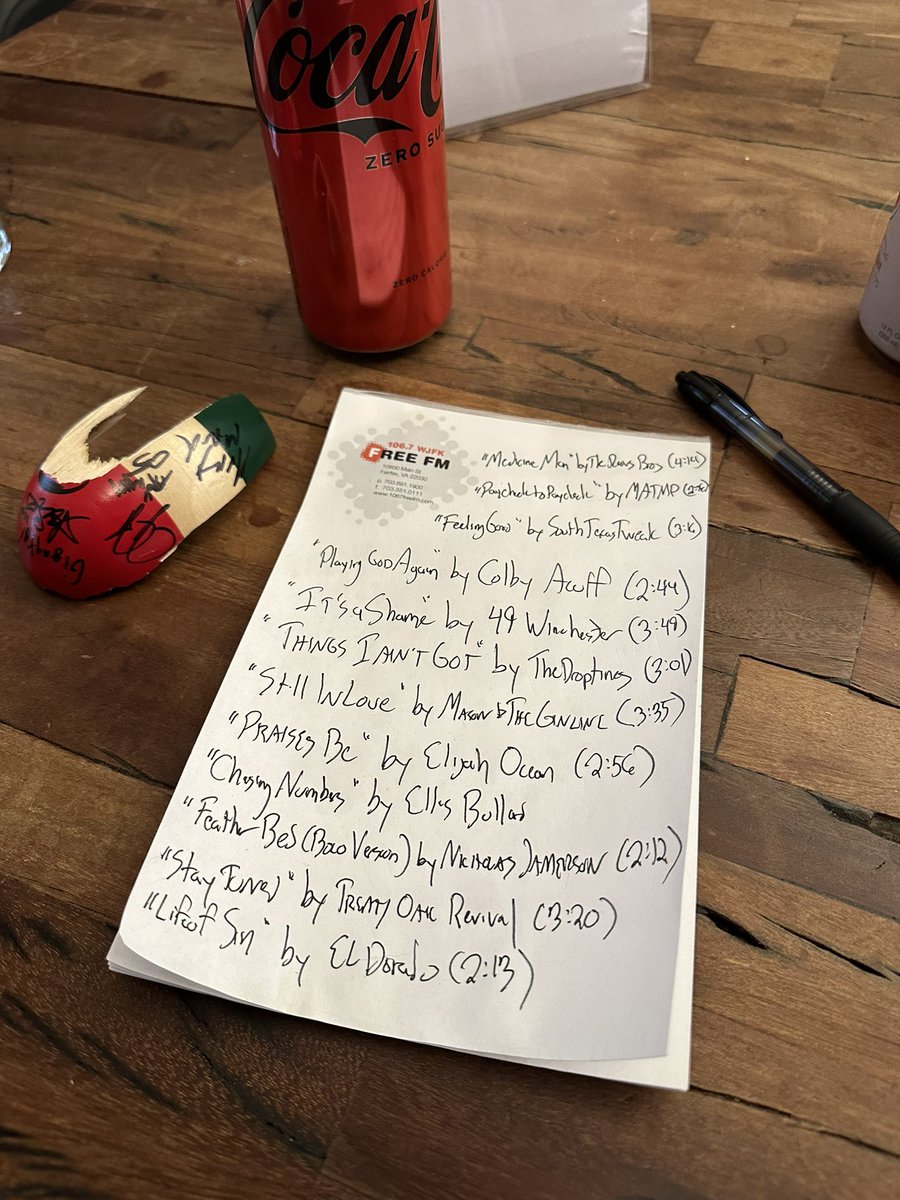 Coca-C
ZERO SU
ZERO CALO
12 FL O
106.7 WJFK
FREE FM
10800 Main St
Fairfax, VA 22030
p. 703.691.1900
f. 703.351.0111
www.1067freefm.com
"Medicine Man" by The Bros (4:14)
"Paycheck to Paycheck" by MATMP
"Feeling Good" by South Texas Tweek
"Playing God Again" by Colby Acuff (2:44)
"It's a Shame" by 49 Winchester (3:49)
"THINGS I AIN'T GOT" by The Droptines (3:01)
"Still In Love" by Mason & THE GIN LINE (3:35)
"PRAISES Be" by Elijah Ocean (2:56)
"Chasing Numbers" by Ellis Bullard
"Feather Bed (Bolo Version) by NICHOLAS JAMERSON (2:12)
"Stay Tuned" by TREATY OAK Revival (3:20)
"Life of Sin" by EL Dorado (2:13)